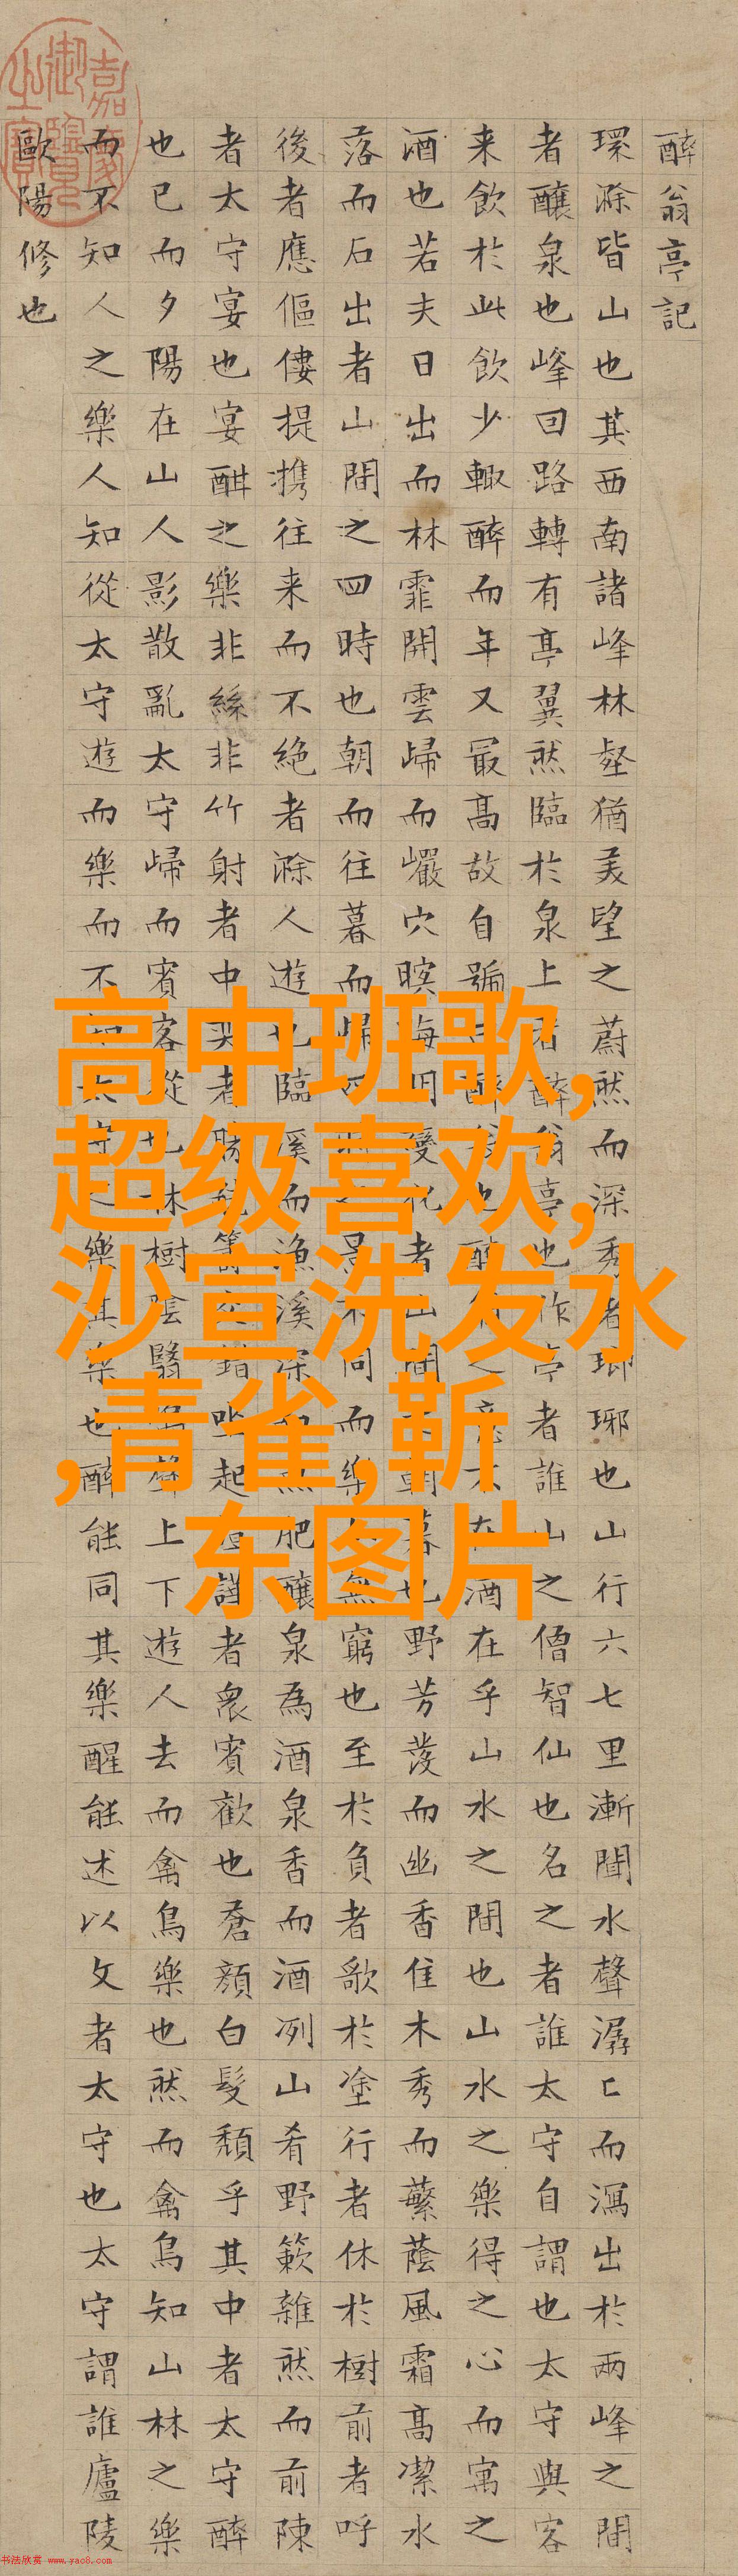 醉翁亭記
環滁皆山也其西南諸峰林壑猶美望之蔚然而深秀者瑯琊也山行六七里漸聞水聲潺〻而瀉出於兩峰之間
者釀泉也峰回路轉有亭翼然臨於泉上者醉翁亭也作亭者誰山之僧智仙也名之者誰太守自謂也太守與客
来飲於此飲少輒醉而年又最高故自號醉翁也醉之在酒在乎山水之間也山水之樂得之心而寓之
酒也若夫日出而林霏開雲歸而巖穴暝晦明變化者山間朝暮也野芳發而幽香佳木秀而蘩蔭風霜高潔水
落而石出者山間之四時也朝而往暮而歸四景不同而樂無窮也至於負者歌於塗行者休於樹前者呼
後者應傴僂提攜往来而不絶者滁人遊也臨溪而漁溪深肥釀泉為酒泉香而酒冽山肴野簌雜然而前陳
者太守宴也宴酣之樂非絲非竹射者中奕者勝籌錯坐起譁者衆賓歡也蒼顔白髮頹乎其中者太守醉
也已而夕陽在山人影散亂太守歸而賓客從也林樹陰翳聲上下遊人去而禽鳥樂也然而禽鳥知山林之樂
而不知人之樂人知從太守遊而樂而不太守樂其樂也醉能同其樂醒能述以文者太守也太守謂誰廬陵
歐陽修也
嘉慶御覽之寶
高中班歌,
超级喜欢,
沙宣洗发水
,青雀,靳
东图片
书法欣赏 www.yac8.com